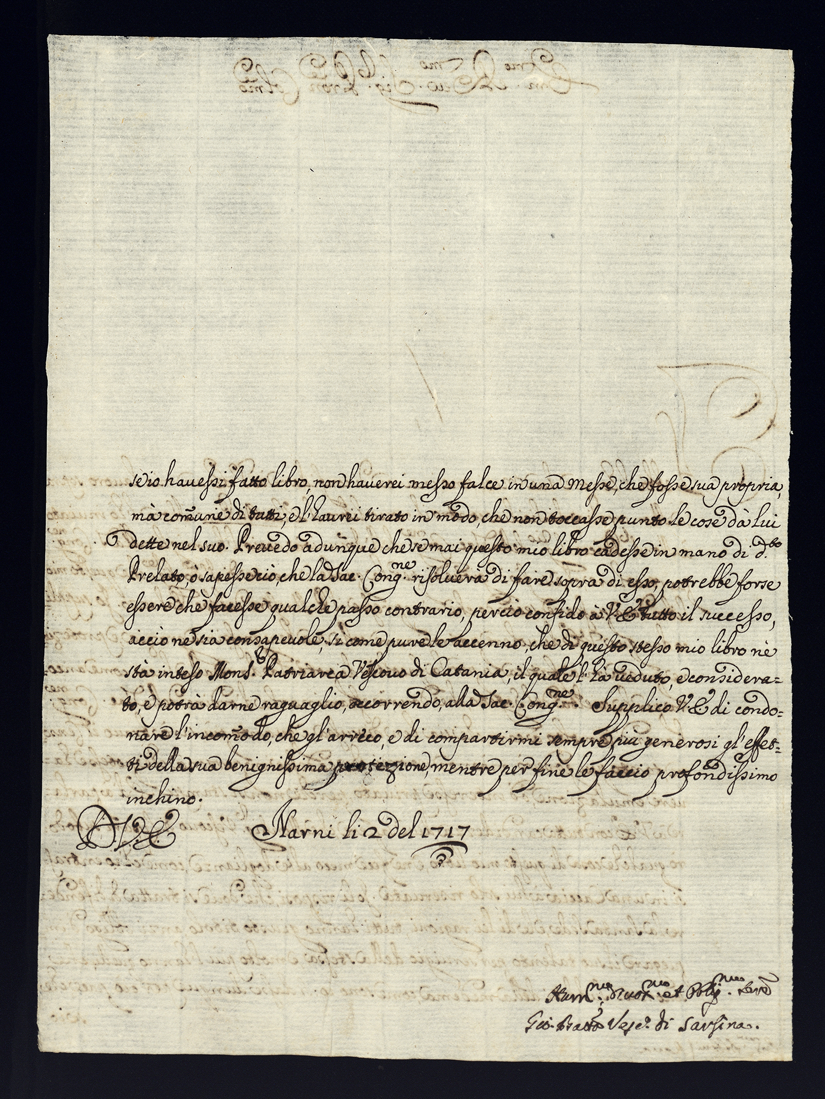 se io havessi fatto libro, non haverei messo falce in una Messe, che fosse sua propria,
mà comune di tutti, e l'haurei tirato in modo, che non toccasse punto le cose dà lui
dette nel suo. Prevedo adunque che se mai questo mio libro cadesse in mano di d.to
Prelato, ò sapesse ciò, che la Sac. Cong.ne risolverà di fare sopra di esso, potrebbe forse
essere che facesse qualche passo contrario, perciò confido à V.E. tutto il successo,
acciò ne sia consapeuole, sì come pure le accenno, che di questo stesso mio libro nè
stà inteso Mons.r Patriarca Vescouo di Catania, il quale l'hà veduto, e considera=
to, e potrà darne raguaglio, occorrendo, alla Sac. Cong.ne Supplico V.E. di condo=
nare l'incom̃odo, che gl'arreco, e di compartirmi sempre più generosi gl'effet=
ti della sua benignissima protezione, mentre per fine le faccio profondissimo
inchino.
D. V. E. Narni li 2 del 1717
Hum.mo Deuot.mo et Oblig.mo Ser.e
Gio. Batt.a Vesc.o di Sarsina.